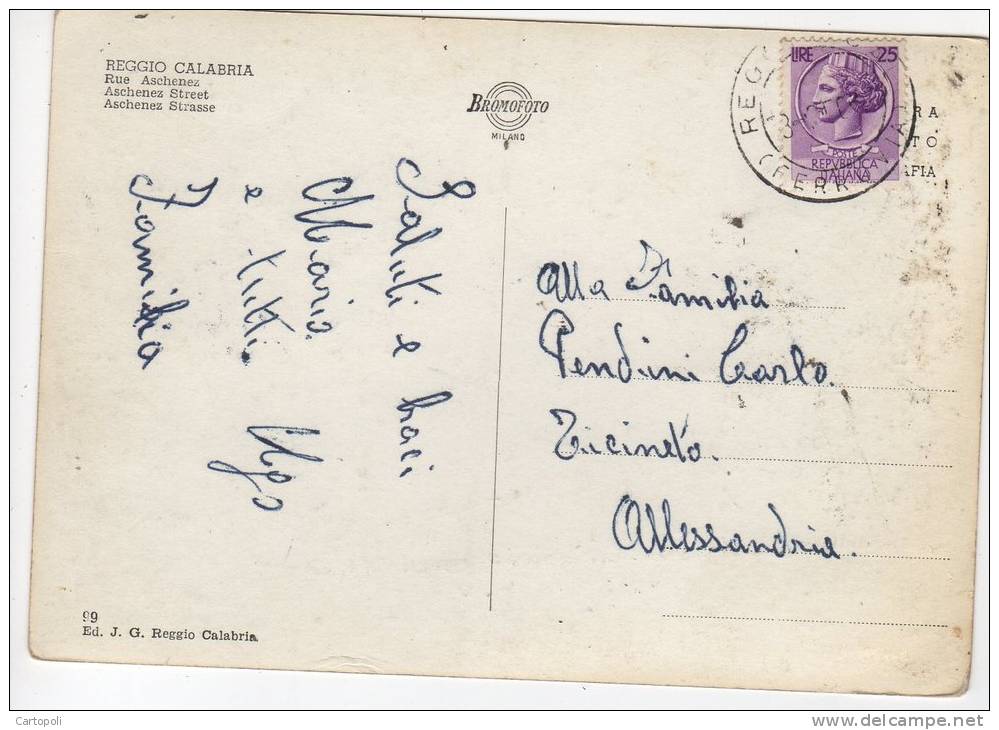 REGGIO CALABRIA
Rue Aschenez
Aschenez Street
Aschenez Strasse
BROMOFOTO
MILANO
LIRE 25
POSTE
REPVBBLICA
ITALIANA
REG
(FERROVIA)
RA
TO
AFIA
Saluti e baci
Mario.
e tutti.
Famiglia
Ugo
Alla Familia
Pendini Carlo.
Ticineto.
Allessandria.
99
Ed. J. G. Reggio Calabria
Cartopoli
www.delcampe.net